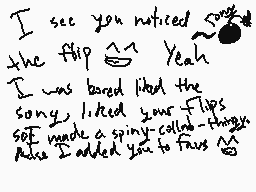 I see you noticed
the flip ^^ Yeah
I was bored liked the
song, liked your flips
so I made a spiny-collab-thingy.
Also I added you to favs ^^